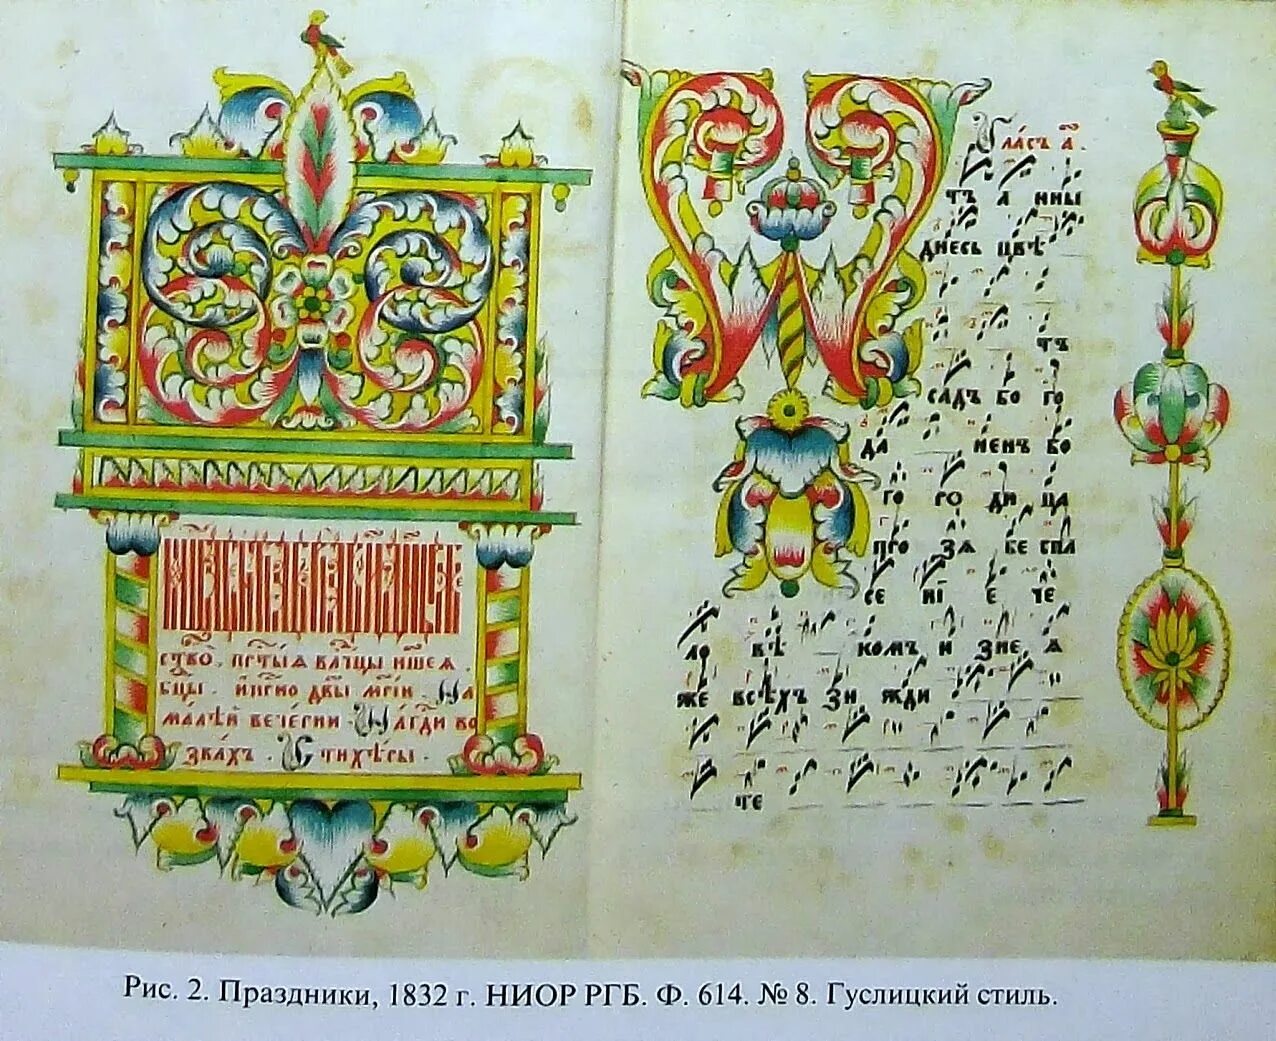 ство. прт҃ыѧ влч҃цы нш҃еѧ.
бц҃ы. и҆ пр҃нѡ дв҃ы мр҃іи. На
малѣй вечерни. На гд҃и во
звахъ. Стихѣры.
Гласъ а҃.
тъ а нны
днесь цвѣ
тъ
садъ бо го
да ненъ бо
го ро ди ца
про зѧ бе спа
се ні е че
ло вѣ комъ и зне, ѧ
же всѣхъ зи жди
те
Рис. 2. Праздники, 1832 г. НИОР РГБ. Ф. 614. № 8. Гуслицкий стиль.